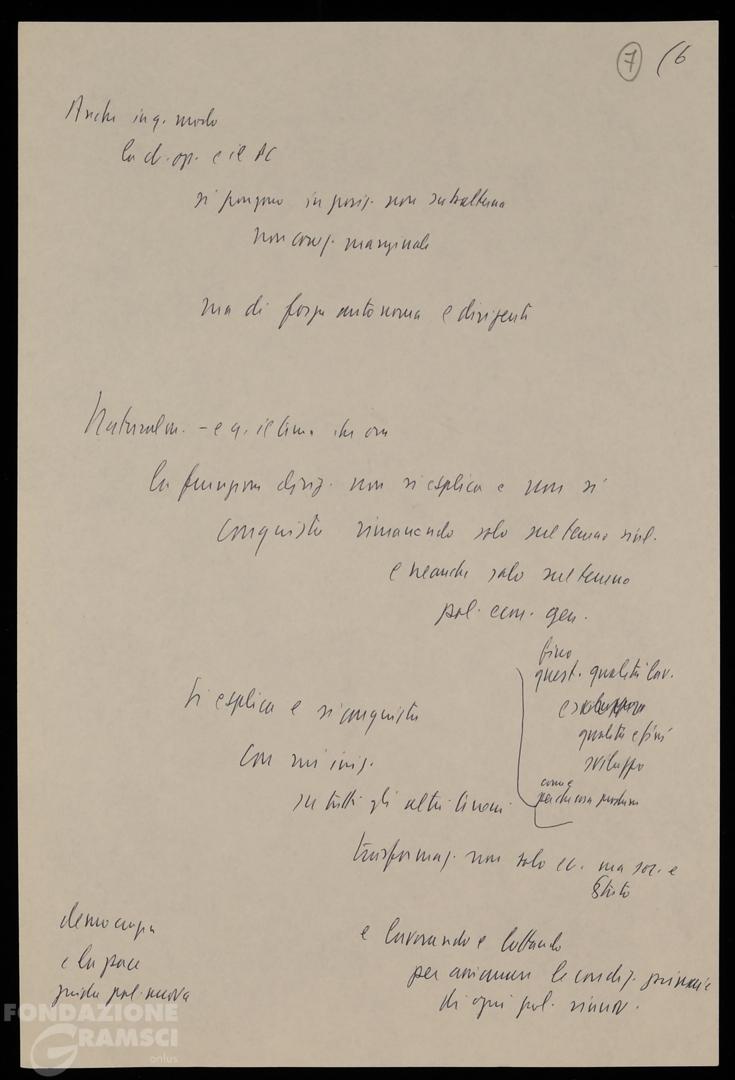 7 (6
Anche in q. modo
la cl. op. e il PC
si pongono in posiz. non subalterna
non corp. marginale
ma di forza autonoma e dirigente
Naturalm. – e q. è il tema che ora
la funzione dirig. non si esplica e non si
conquista rimanendo solo sul terreno sind.
e neanche solo sul terreno
pol. econ. gen.
fino
quest. qualità lav.
qualità e fini
sviluppo
come
per che cosa produrre
Si esplica e si conquista
con iniz.
su tutti gli altri terreni
trasformaz. non solo ec. ma soc. e
Stato
e lavorando e lottando
per avanzare le condiz. primarie
di ogni pol. rinnov.
democrazia
e la pace
guida pol. nuova
FONDAZIONE
GRAMSCI
onlus